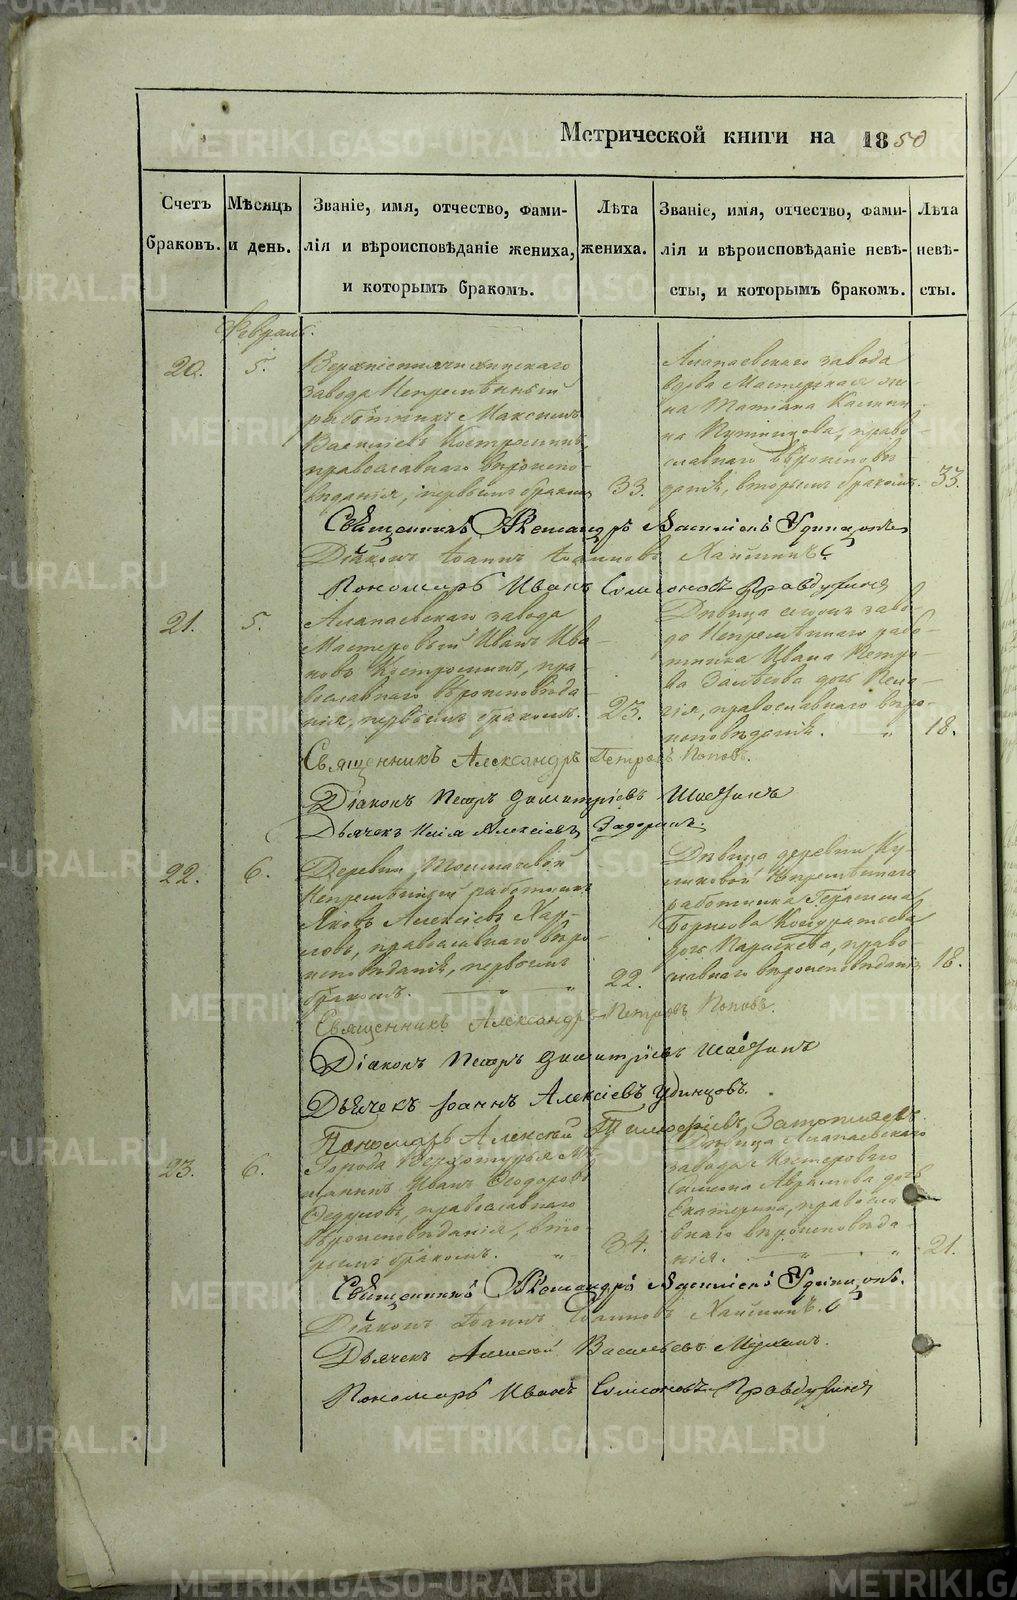 Метрической книги на 1850
Счетъ браковъ.
Мѣсяцъ и день.
Званіе, имя, отчество, фами-
лія и вѣроисповѣданіе жениха,
и которымъ бракомъ.
Лѣта жениха.
Званіе, имя, отчество, фами-
лія и вѣроисповѣданіе невѣ-
сты, и которымъ бракомъ.
Лѣта невѣ-
сты.
Февраль.
20.
5.
завода Непремѣнный
работникъ Максимъ
Василіевъ Костроминъ,
православнаго вѣроиспо-
вѣданія, первымъ бракомъ
33.
Алапаевскаго завода
вдова Мастерская же-
на Татіана Калини-
на, право-
славнаго вѣроисповѣ
данія, вторымъ бракомъ.
33.
Священникъ Александръ Василіевъ Удинцовъ
Діаконъ Іоаннъ Іоанновъ
Пономарь Иванъ Симеоновъ Правдухинъ
21.
5.
Алапаевскаго завода
Мастеровый Иванъ Ива
новъ Костроминъ, пра-
вославнаго вѣроисповѣда-
нія, первымъ бракомъ.
23.
Дѣвица сегожъ заво-
да Непремѣннаго рабо-
тника Ивана Петро-
ва дочь Пела-
гія, православнаго вѣро-
исповѣданія. "
18.
Священникъ Александръ Петровъ Поповъ.
Діаконъ Петръ Димитріевъ
Дьячекъ Илія Алексіевъ Задоринъ.
22.
6.
Деревни
Непремѣнный работникъ
Яковъ Алексіевъ Хар-
ловъ, православнаго вѣро-
исповѣданія, первымъ
бракомъ. " "
22.
Дѣвица деревни Ку-
ликовой Непремѣннаго
работника Герасима
Борисова Кондратьева
дочь Параскева, право
славнаго вѣроисповѣданія
18.
Священникъ Александръ Петровъ Поповъ.
Діаконъ Петръ Димитріевъ
Дьячекъ Іоаннъ Алексіевъ Удинцовъ.
Пономарь Алексій Тимофеевъ
23.
6.
Города Верхотурья Мѣ
щанинъ Иванъ Ѳеодоровъ
православнаго
вѣроисповѣданія, вто-
рымъ бракомъ. "
34.
Дѣвица Алапаевскаго
завода Мастероваго
Симеона Аврамова дочь
Екатерина, правосла
внаго вѣроисповѣда
нія. " "
21.
Священникъ Александръ Василіевъ Удинцовъ.
Діаконъ Іоаннъ Іоанновъ
Дьячекъ Алексій Васильевъ
Пономарь Иванъ Симеоновъ Правдухинъ
METRIKI.GASO-URAL.RU